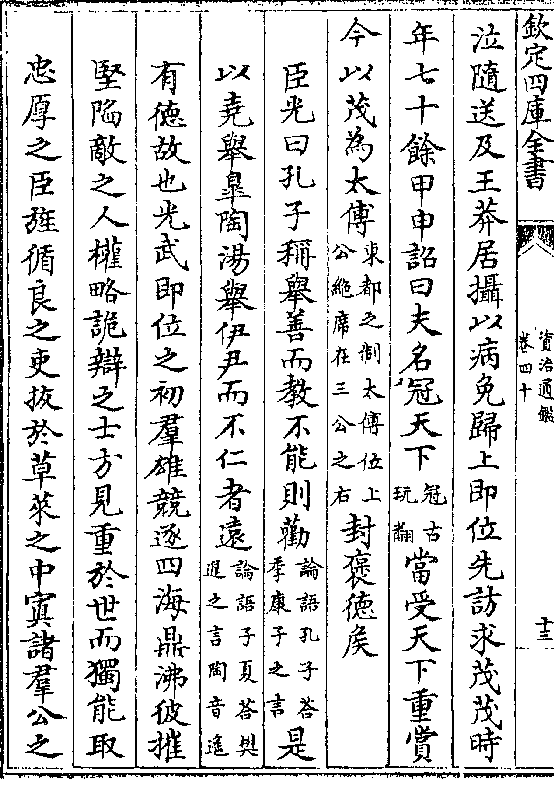 欽定四庫全書
資治通鑑
卷四十
十三
泣隨送及王莽居攝以病免歸上即位先訪求茂茂時
年七十餘甲申詔曰夫名冠天下冠古玩翻當受天下重賞
今以茂為太傅東都之制太傅位上公絶席在三公之右封褒德矦
臣光曰孔子稱舉善而教不能則勸論語孔子答季康子之言是
以堯舉臯陶湯舉伊尹而不仁者逺論語子夏答樊遲之言陶音遙
有德故也光武即位之初羣雄競逐四海鼎沸彼摧
堅陷敵之人權略詭辯之士方見重於世而獨能取
忠厚之臣旌循良之吏拔於草萊之中寘諸羣公之